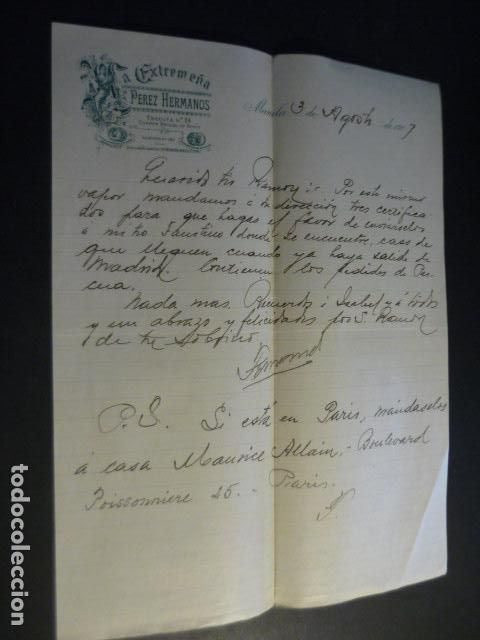 La Extremeña
PEREZ HERMANOS
ESCOLTA Nº
Manila 3 de Agosto de 7
Querido tio Ramon: Por este mismo
vapor mandamos a tu dirección tres certifica
dos para que hagas el favor de enviarlos
a mi tio Faustino donde se encuentre, caso de
que lleguen cuando ya haya salido de
Madrid. Contienen los pedidos de
Nada mas. Recuerdos a Isabel y á todos
y un abrazo y felicidades por S. Ramon
de tu sobrino
P.S. Si está en Paris, mándaselos
á casa Maurice Allain,- Boulevard
Poissonniere 25. - Paris.
todocoleccion